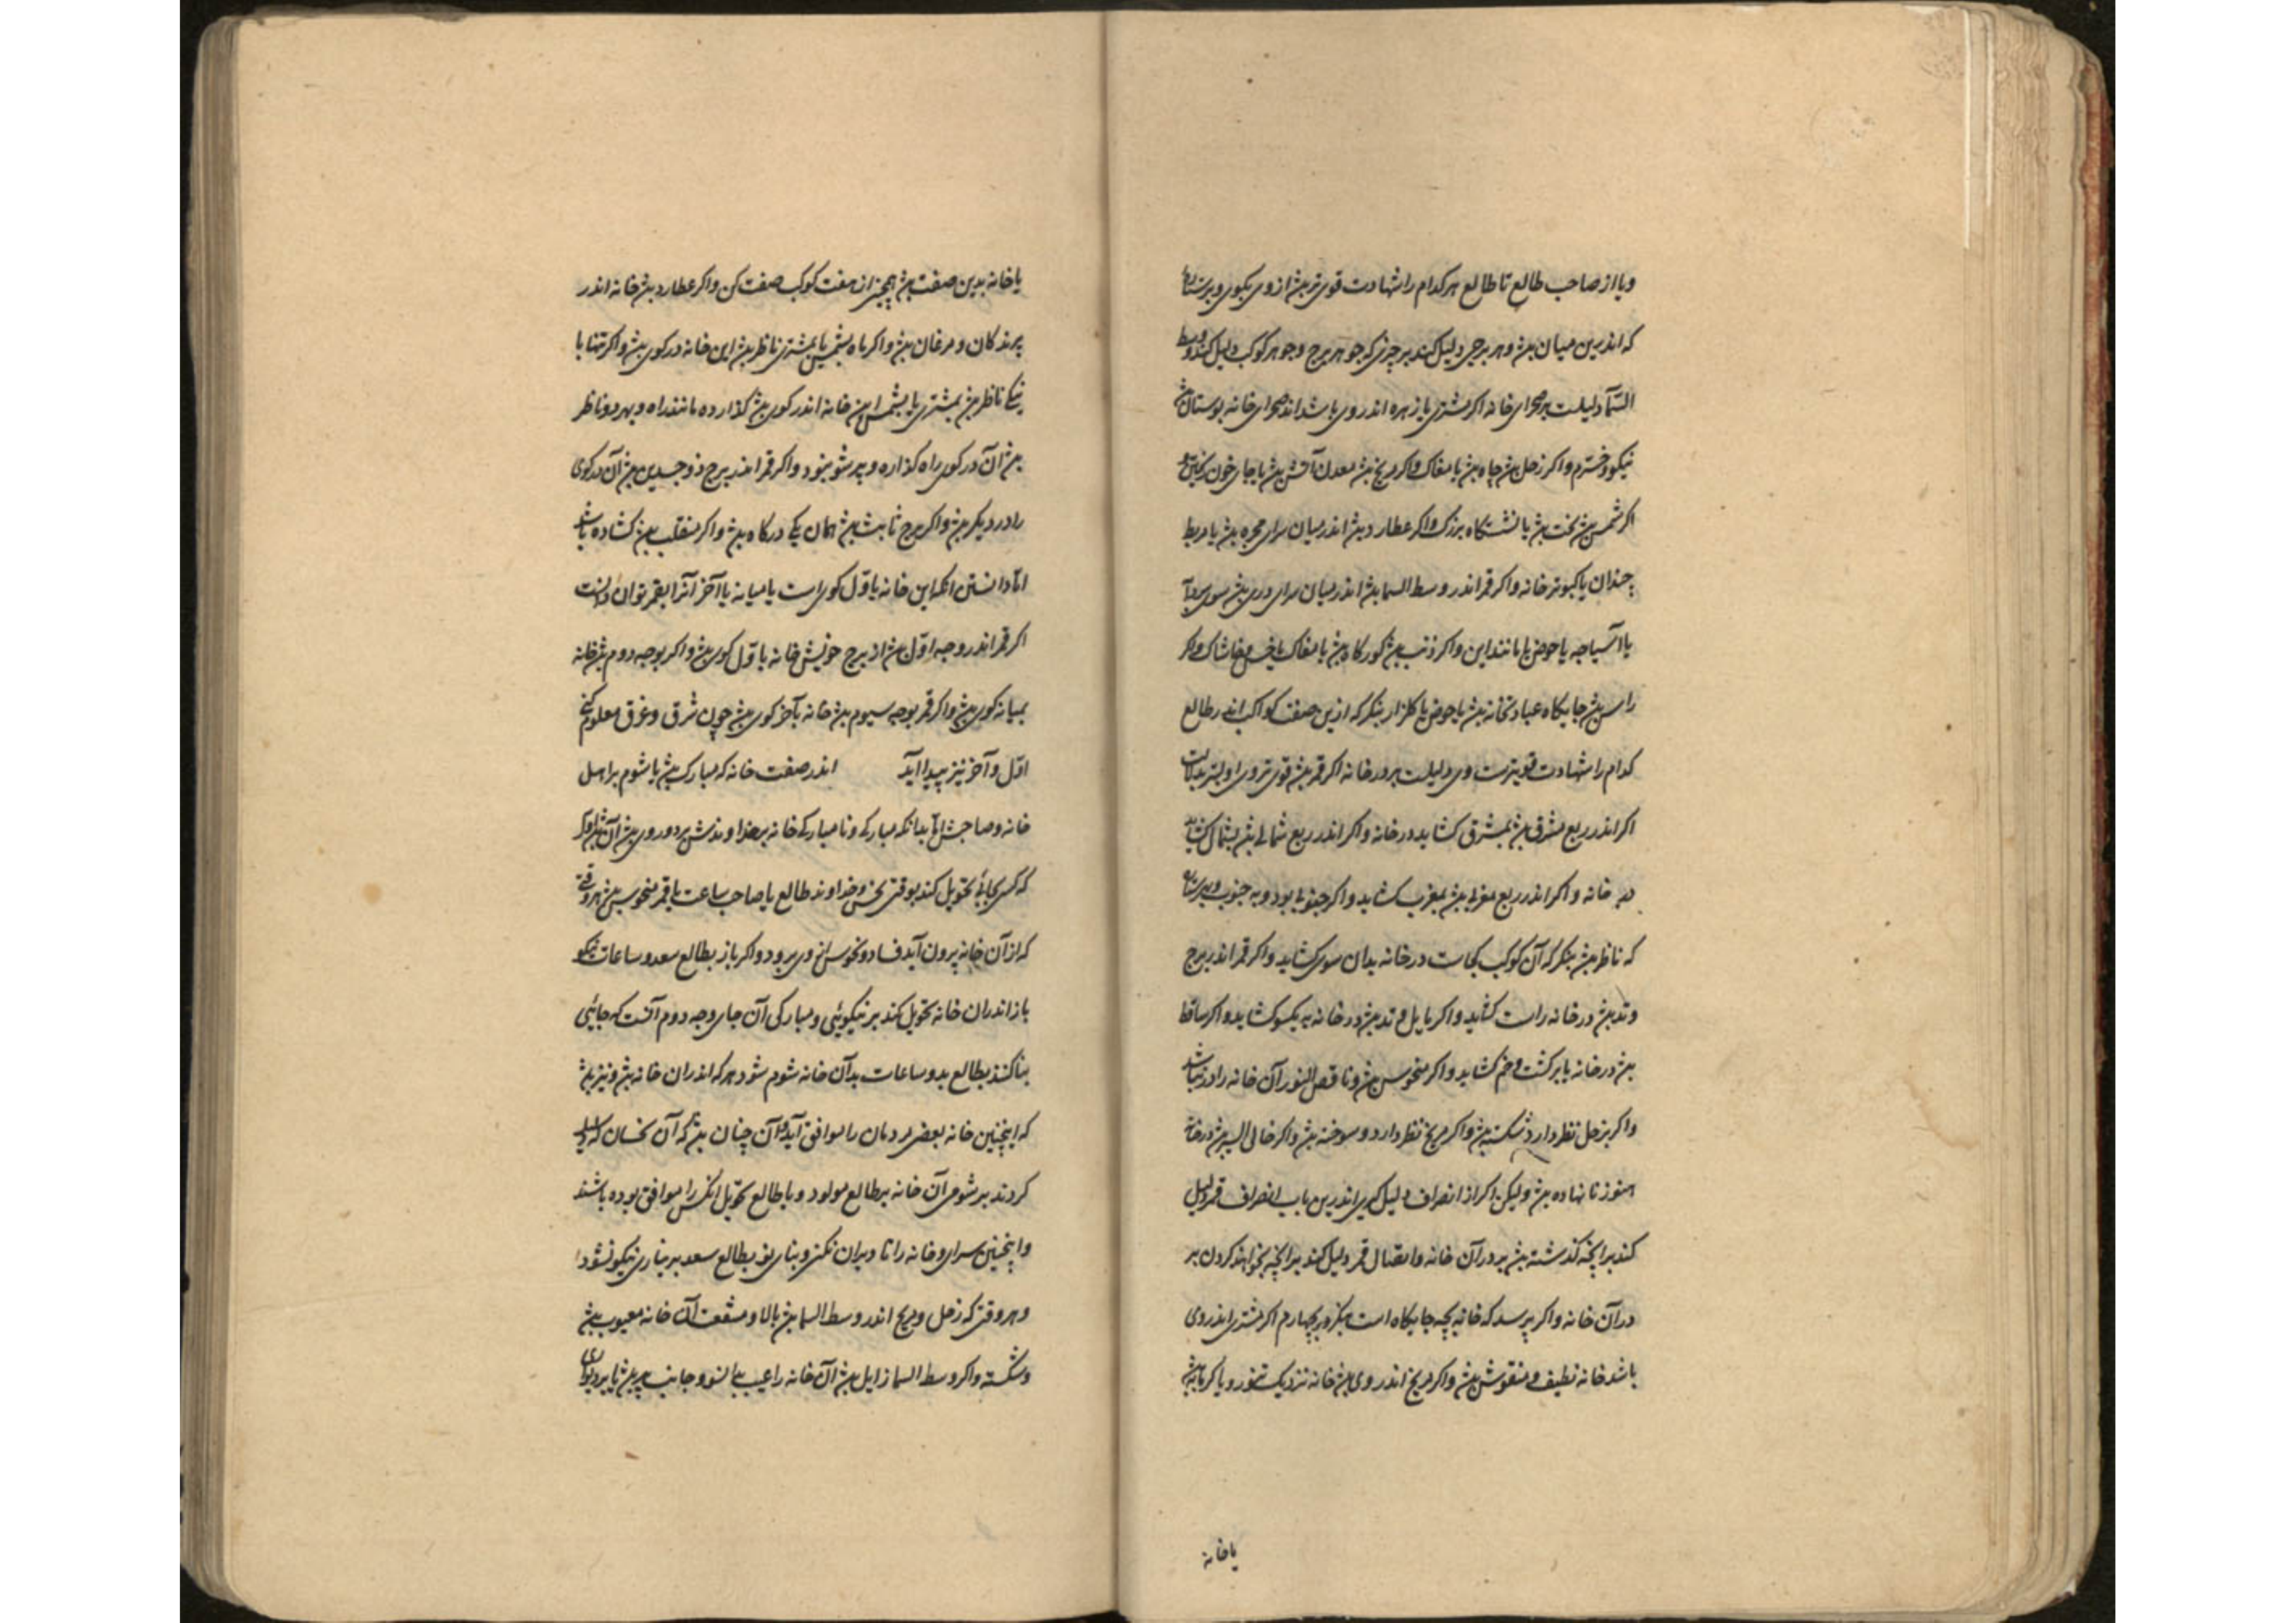 ویا از صاحب طالع تا طالع هر کدام را شهادت قوی تر بش از وی بکوی و بر ستاره
که اندرین میان بش و هر برجی دلیل کند بر چیزی که جوهر برج و جوهر کوکب دلیل کند و وسط
السّمآ دلیلست بر صحرای خانه اکر مشتری یا زهره اندر وی باشد اندر صحرای خانه بوستان بش
نیکو و خسترم و اکر زحل بش چاه بش یا مغاک و اکر مریخ بش معدن آتش بش یا جای خون ریختن
اکر شمس بش تخت بش یا نشستگاه بزرک و اکر عطارد بش اندر میان سرای حجره بش یا مربط
چندان یا کبوتر خانه و اکر قمر اندر وسط السما بش اندر میان سرای دری بش سوی
یا آسیاچه یا حوض یا مانند این و اکر ذنب بش کورکاه بش یا مغاک یا خس و خاشاک و اکر
راس بش جایکاه عبادتخانه بش یا حوض یا کلزار بنکر که ازین صفت کواکب اندر طالع
کدام را شهادت قویترست وی دلیلست بر در خانه اکر قمر بش قوی تر وی اولیتر بدلالت
اکر اندر ربع مشرقی بش بمشرق کشاید در خانه و اکر اندر ربع شمالی بش بشمال کشاید
در خانه و اکر اندر ربع مغربی بش بمغرب کشاید و اکر جنوبی بود و به جنوب و بهر ستاره
که ناظر بش بنکر که آن کوکب کجاست در خانه بدان سوی کشاید و اکر قمر اندر برج
وتد بش در خانه راست کشاید و اکر مایل وتد بش در خانه به یکسو کشاید و اکر ساقط
بش در خانه یا برکشت و خم کشاید و اکر منحوس بش و ناقص النور آن خانه را در نباشد
و اکر بزحل نظر دارد شکسته بش و اکر مریخ نظر دارد و سوخته بش و اکر خالی السیر بش در خانه
هنوز نا نهاده بش ولیکن اکر از انصراف دلیل کیری اندرین باب انصراف قمر دلیل
کند بر انچه کذشته بش بر در آن خانه و اتصال قمر دلیل کند بر انچه بخواهند کردن بر
در آن خانه و اکر پرسد که خانه بچه جایکاه است بنکر بچهارم اکر مشتری اندر وی
باشد خانه نظیف و منقوش بش و اکر مریخ اندر وی بش خانه نزدیک تنور و یا کرمابه بش
یا خانه
یا خانه بدین صفت بش همچنین از هفت کوکب صفت کن و اکر عطارد بش خانه اندر
پرندکان و مرغان بش و اکر ماه بشمس یا بمشتری ناظر بش این خانه در کوی بش و اکر تنها با
یکی ناظر بش بمشتری یا بشمس این خانه اندر کوی بش کذارده مانند راه و بهر دو ناظر
بش آن در کوی راه کذاره و پر شو بنود و اکر قمر اندر برج ذو جسدین بش آن در کوی
را در دیکر بش و اکر برج ثابت بش همان یکی درکاه بش و اکر منقلب بش کشاده باشد
امّا دانستن انکه این خانه باوّل کوی است یا میانه یا آخر آنرا بقمر توان دانست
اکر قمر اندر وجه اوّل بش از برج خویش خانه باوّل کوی بش و اکر بوجه دوم بش خانه
بمیانه کوی بش و اکر قمر بوجه سیوم بش خانه بآخر کوی بش چون شرق و غرق معلوم کنی
اوّل و آخر نیز پیدا آید اندر صفت خانه که مبارک بش یا شوم بر اهل
خانه و صاحبش امّا بدانکه مبارکی و نا مبارکی خانه بر خداوندش بر دو روی بش
که کسی بجائی تحویل کند بوقتی نحس و خداوند طالع یا صاحب ساعت یا قمر منحوس بش هر وقتی
که از آن خانه بیرون آید فساد و نحوس از وی برود و اکر باز بطالع سعد و ساعات نیکو
باز اندران خانه تحویل کند بر نیکوئی و مبارکی آن جای وجه دوم آنست که جائی
بنا کنند بطالع بد و ساعات بد آن خانه شوم شود هر که اندران خانه بش و نیز بش
که اینچنین خانه بعضی مردمان را موافق آید و آن چنان بش که آن نحسان که دلیل
کردند بر شومی آن خانه بر طالع مولود و یا طالع تحویل انکس را موافق بوده باشند
و اینچنین سرای و خانه را تا ویران نکنی و بنای نو بطالع سعد بر نیاری نیکو نشود
و هر وقتی که زحل و مریخ اندر وسط السما بش بالا و سقف آن خانه معیوب بش
و شکسته و اکر وسط السما زایل بش آن خانه را عیب